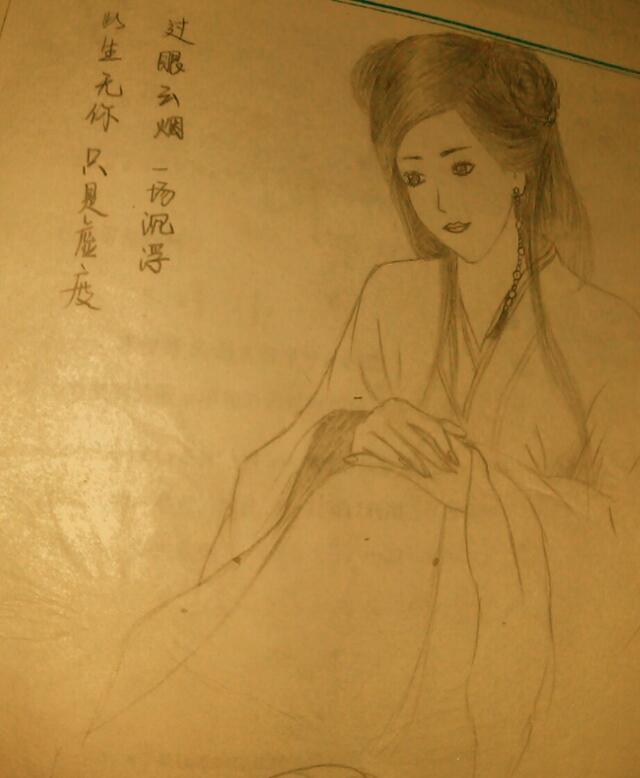 过眼云烟 一场沉浮
此生无你 只是虚度